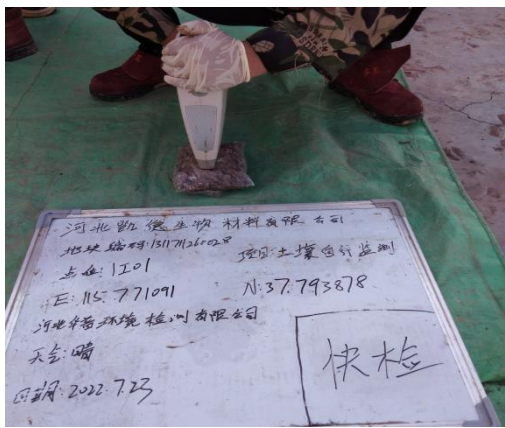 河北凯德生物材料有限公司
地块编码:1311711260028
点位:1I01
项目:土壤自行监测
E:115.771091
N:37.793878
河北华普环境检测有限公司
天气:晴
日期:2022.7.23
快检